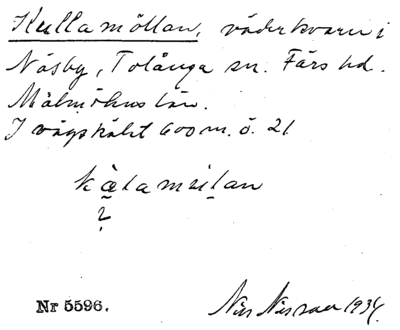 Kullamöllan, väderkvarn i
Näsby, Tolånga sn. Färs hd.
Malmöhus län.
I vägskält 600 m. ö. 21
?
Nr 5596. Nils Nilsson 1934.